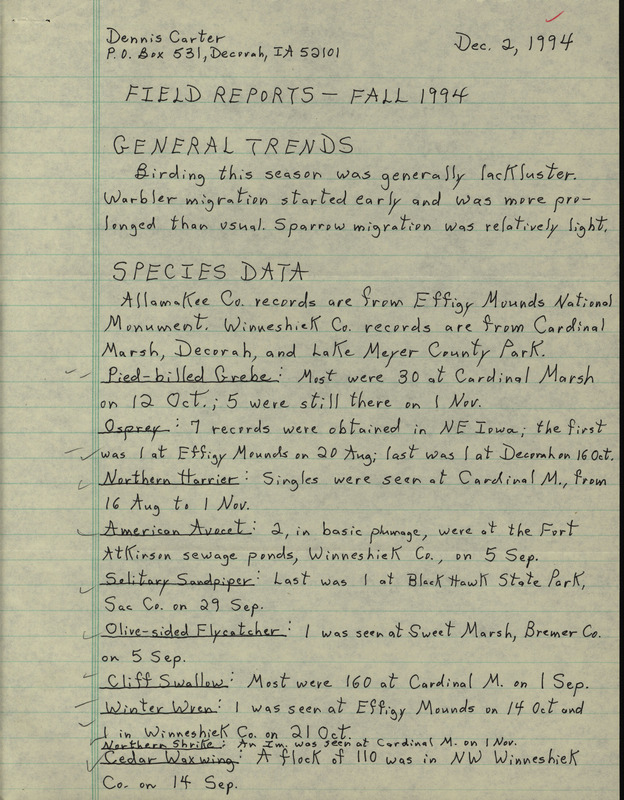 Dennis Carter
P.O. Box 531, Decorah, IA 52101
Dec. 2, 1994
FIELD REPORTS — FALL 1994
GENERAL TRENDS
Birding this season was generally lackluster.
Warbler migration started early and was more pro-
longed than usual. Sparrow migration was relatively light.
SPECIES DATA
Allamakee Co. records are from Effigy Mounds National
Monument. Winneshiek Co. records are from Cardinal
Marsh, Decorah, and Lake Meyer County Park.
Pied-billed Grebe: Most were 30 at Cardinal Marsh
on 12 Oct.; 5 were still there on 1 Nov.
Osprey: 7 records were obtained in NE Iowa; the first
was 1 at Effigy Mounds on 20 Aug; last was 1 at Decorah on 16 Oct.
Northern Harrier: Singles were seen at Cardinal M., from
16 Aug to 1 Nov.
American Avocet: 2, in basic plumage, were at the Fort
Atkinson sewage ponds, Winneshiek Co., on 5 Sep.
Solitary Sandpiper: Last was 1 at Black Hawk State Park,
Sac Co. on 29 Sep.
Olive-sided Flycatcher: 1 was seen at Sweet Marsh, Bremer Co.
on 5 Sep.
Cliff Swallow: Most were 160 at Cardinal M. on 1 Sep.
Winter Wren: 1 was seen at Effigy Mounds on 14 Oct and
1 in Winneshiek Co. on 21 Oct.
Northern Shrike: An Im. was seen at Cardinal M. on 1 Nov.
Cedar Waxwing: A flock of 110 was in NW Winneshiek
Co. on 14 Sep.